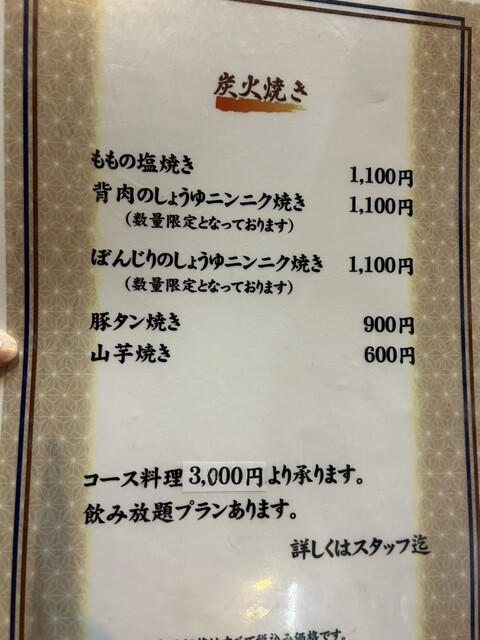 炭火焼き
ももの塩焼き 1,100円
背肉のしょうゆニンニク焼き 1,100円
(数量限定となっております)
ぼんじりのしょうゆニンニク焼き 1,100円
(数量限定となっております)
豚タン焼き 900円
山芋焼き 600円
コース料理 3,000円より承ります。
飲み放題プランあります。
詳しくはスタッフ迄
税込み価格です。